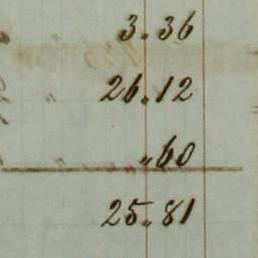 3.36
" 26.12
" " „60
25.81